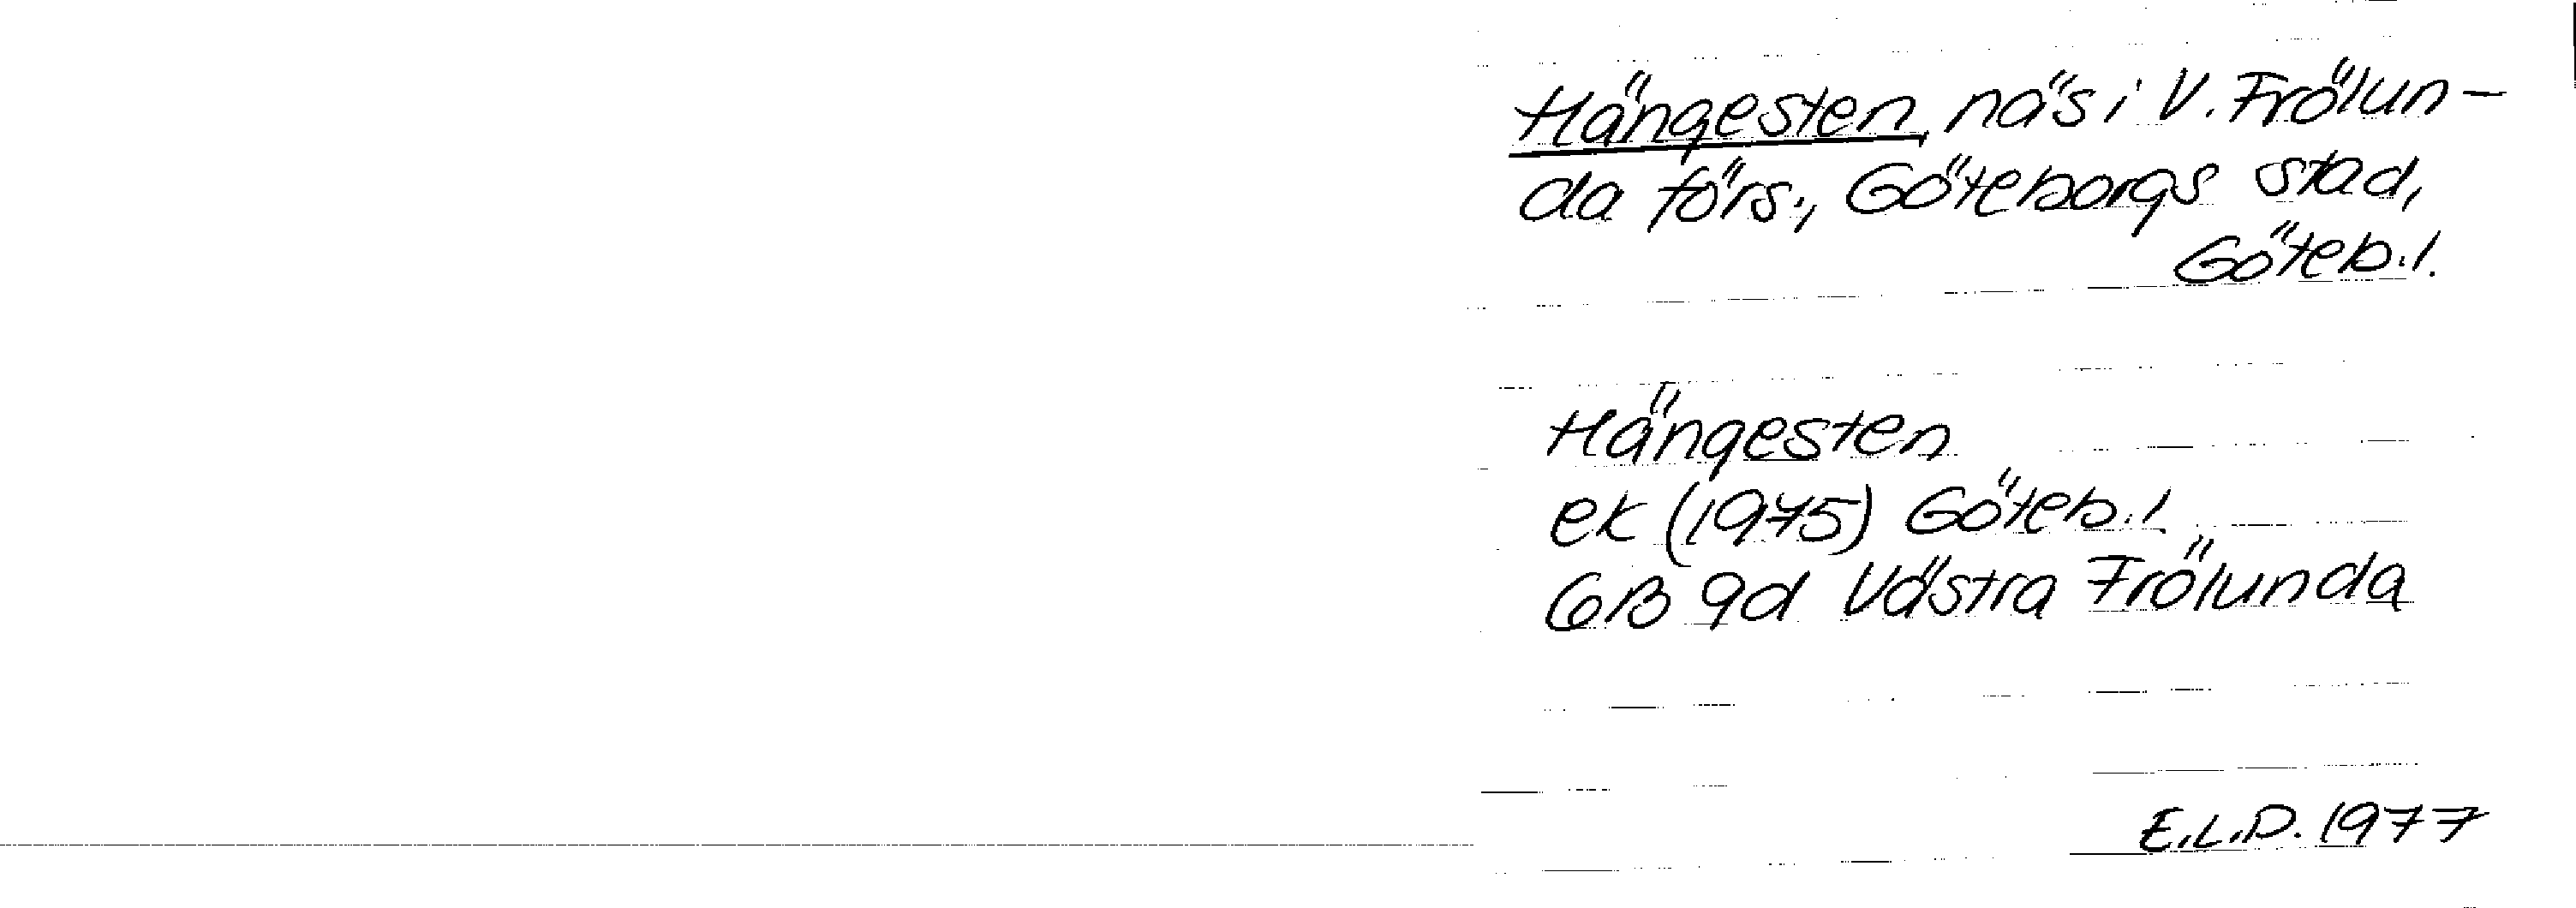 Hängesten, näs i V. Frölun-
da förs., Göteborgs stad,
Göteb.l.
Hängesten
ek (1975) Göteb.l.
6B 9d Västra Frölunda
E.L.P. 1977